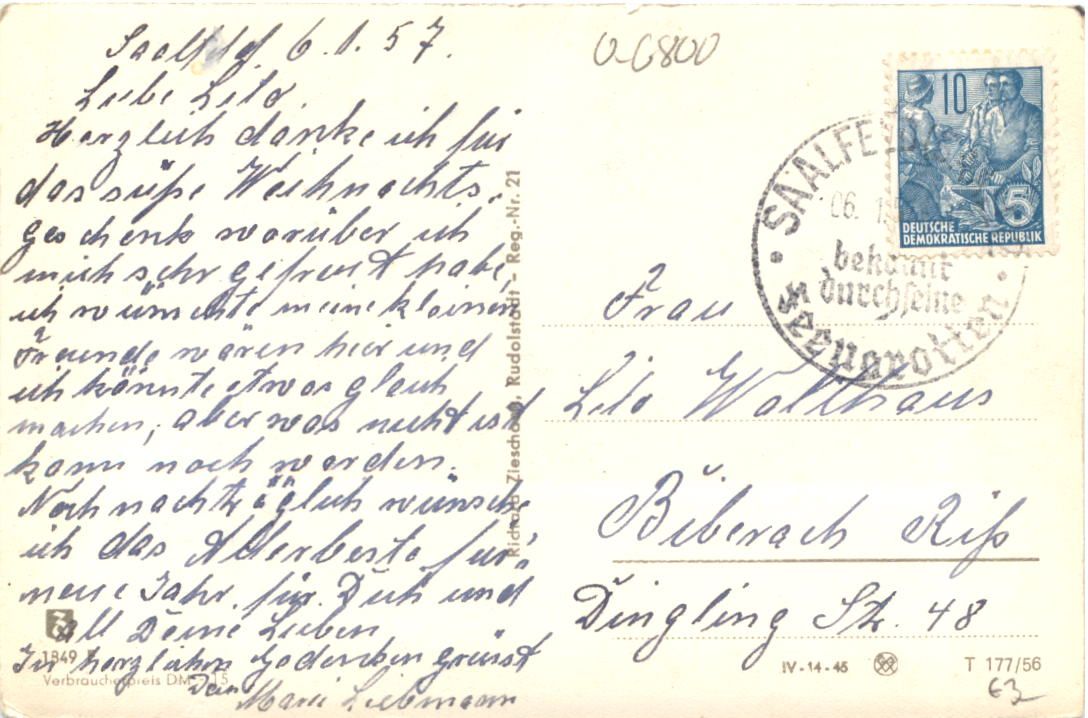 Saalfeld, 6.1.57.
Liebe Lilo.
Herzlich danke ich für
das süße Weihnachts-
geschenk worüber ich
mich sehr gefreut habe
ich wünschte meine kleinen
Freunde wären hier und
ich könnte etwas gleich
machen, aber was nicht ist
kann noch werden.
Noch nachträglich wünsche
ich das Allerbeste für's
neue Jahr, für Dich und
all Deine Lieben
In herzlichen Gedenken grüsst
Dein Marie Liebmann
1849
Verbraucherpreis DM -.15
Richard Zieschang, Rudolstadt - Reg.-Nr. 21
0-6800
10
5
DEUTSCHE
DEMOKRATISCHE REPUBLIK
SAALFELD
06. 1.
bekannt
durch seine
Feengrotten
Frau
Lilo Walthaus
Biberach Riß
Dingling Str. 48
IV-14-45
T 177/56
63